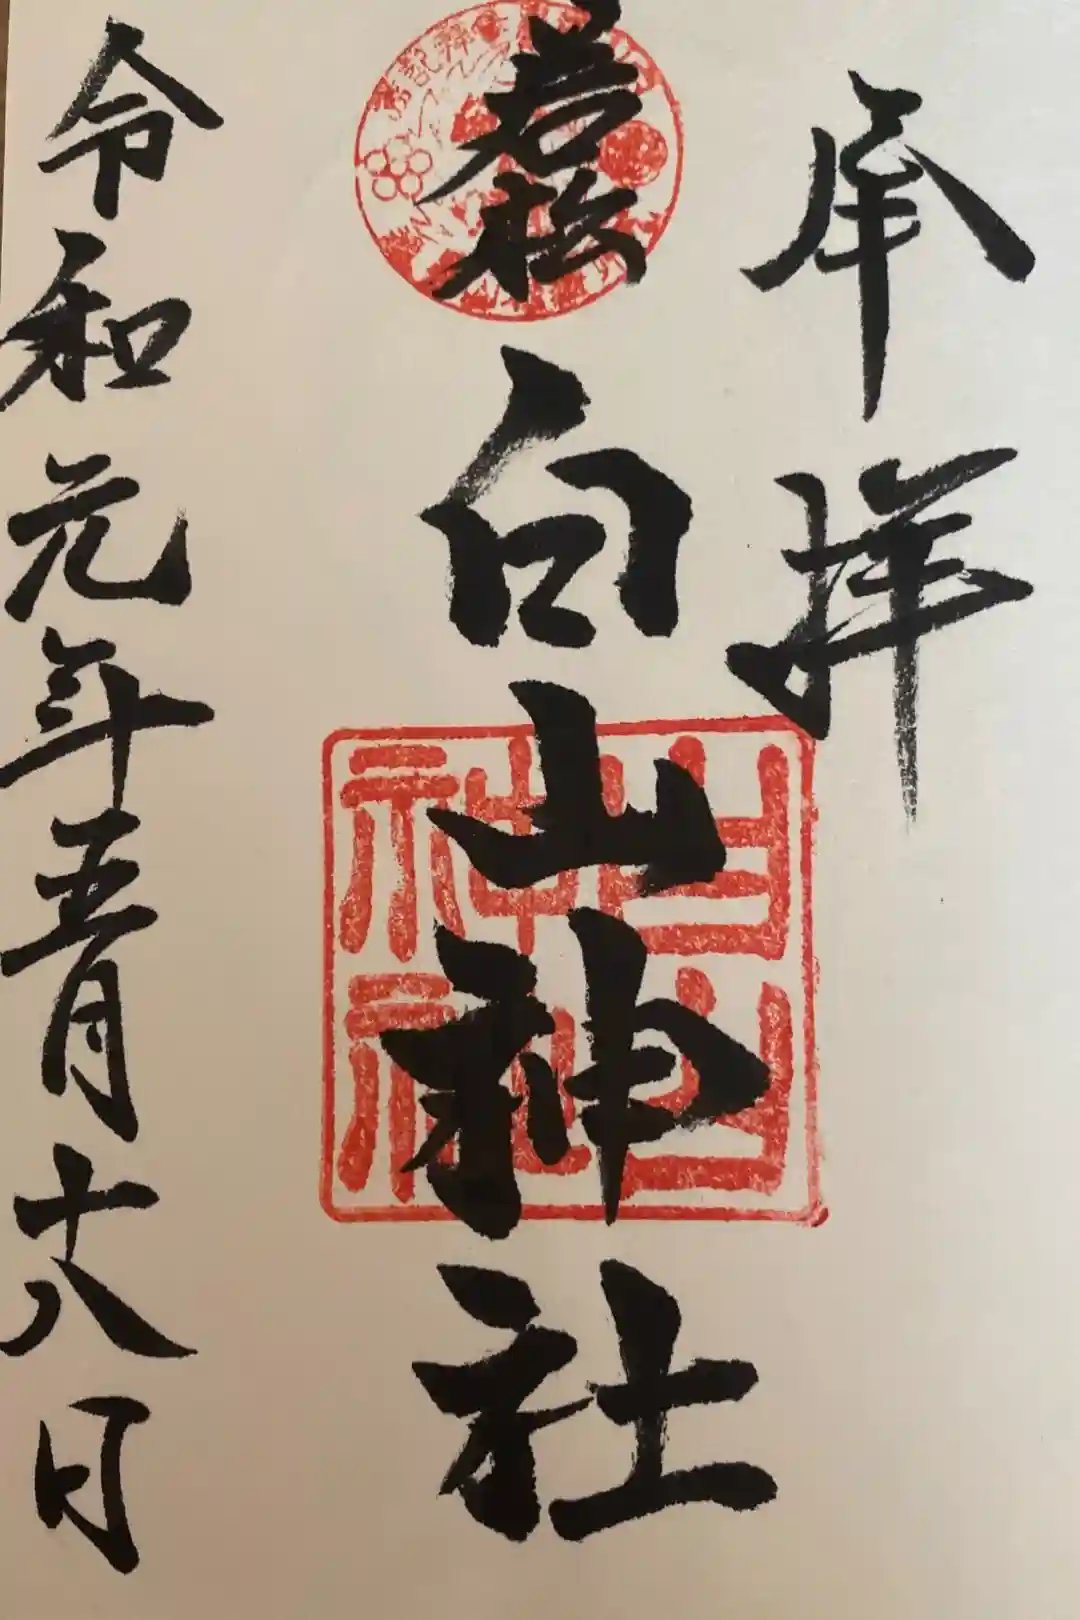 奉拝
若松
白山神社
白山
神社
令和元年五月十八日